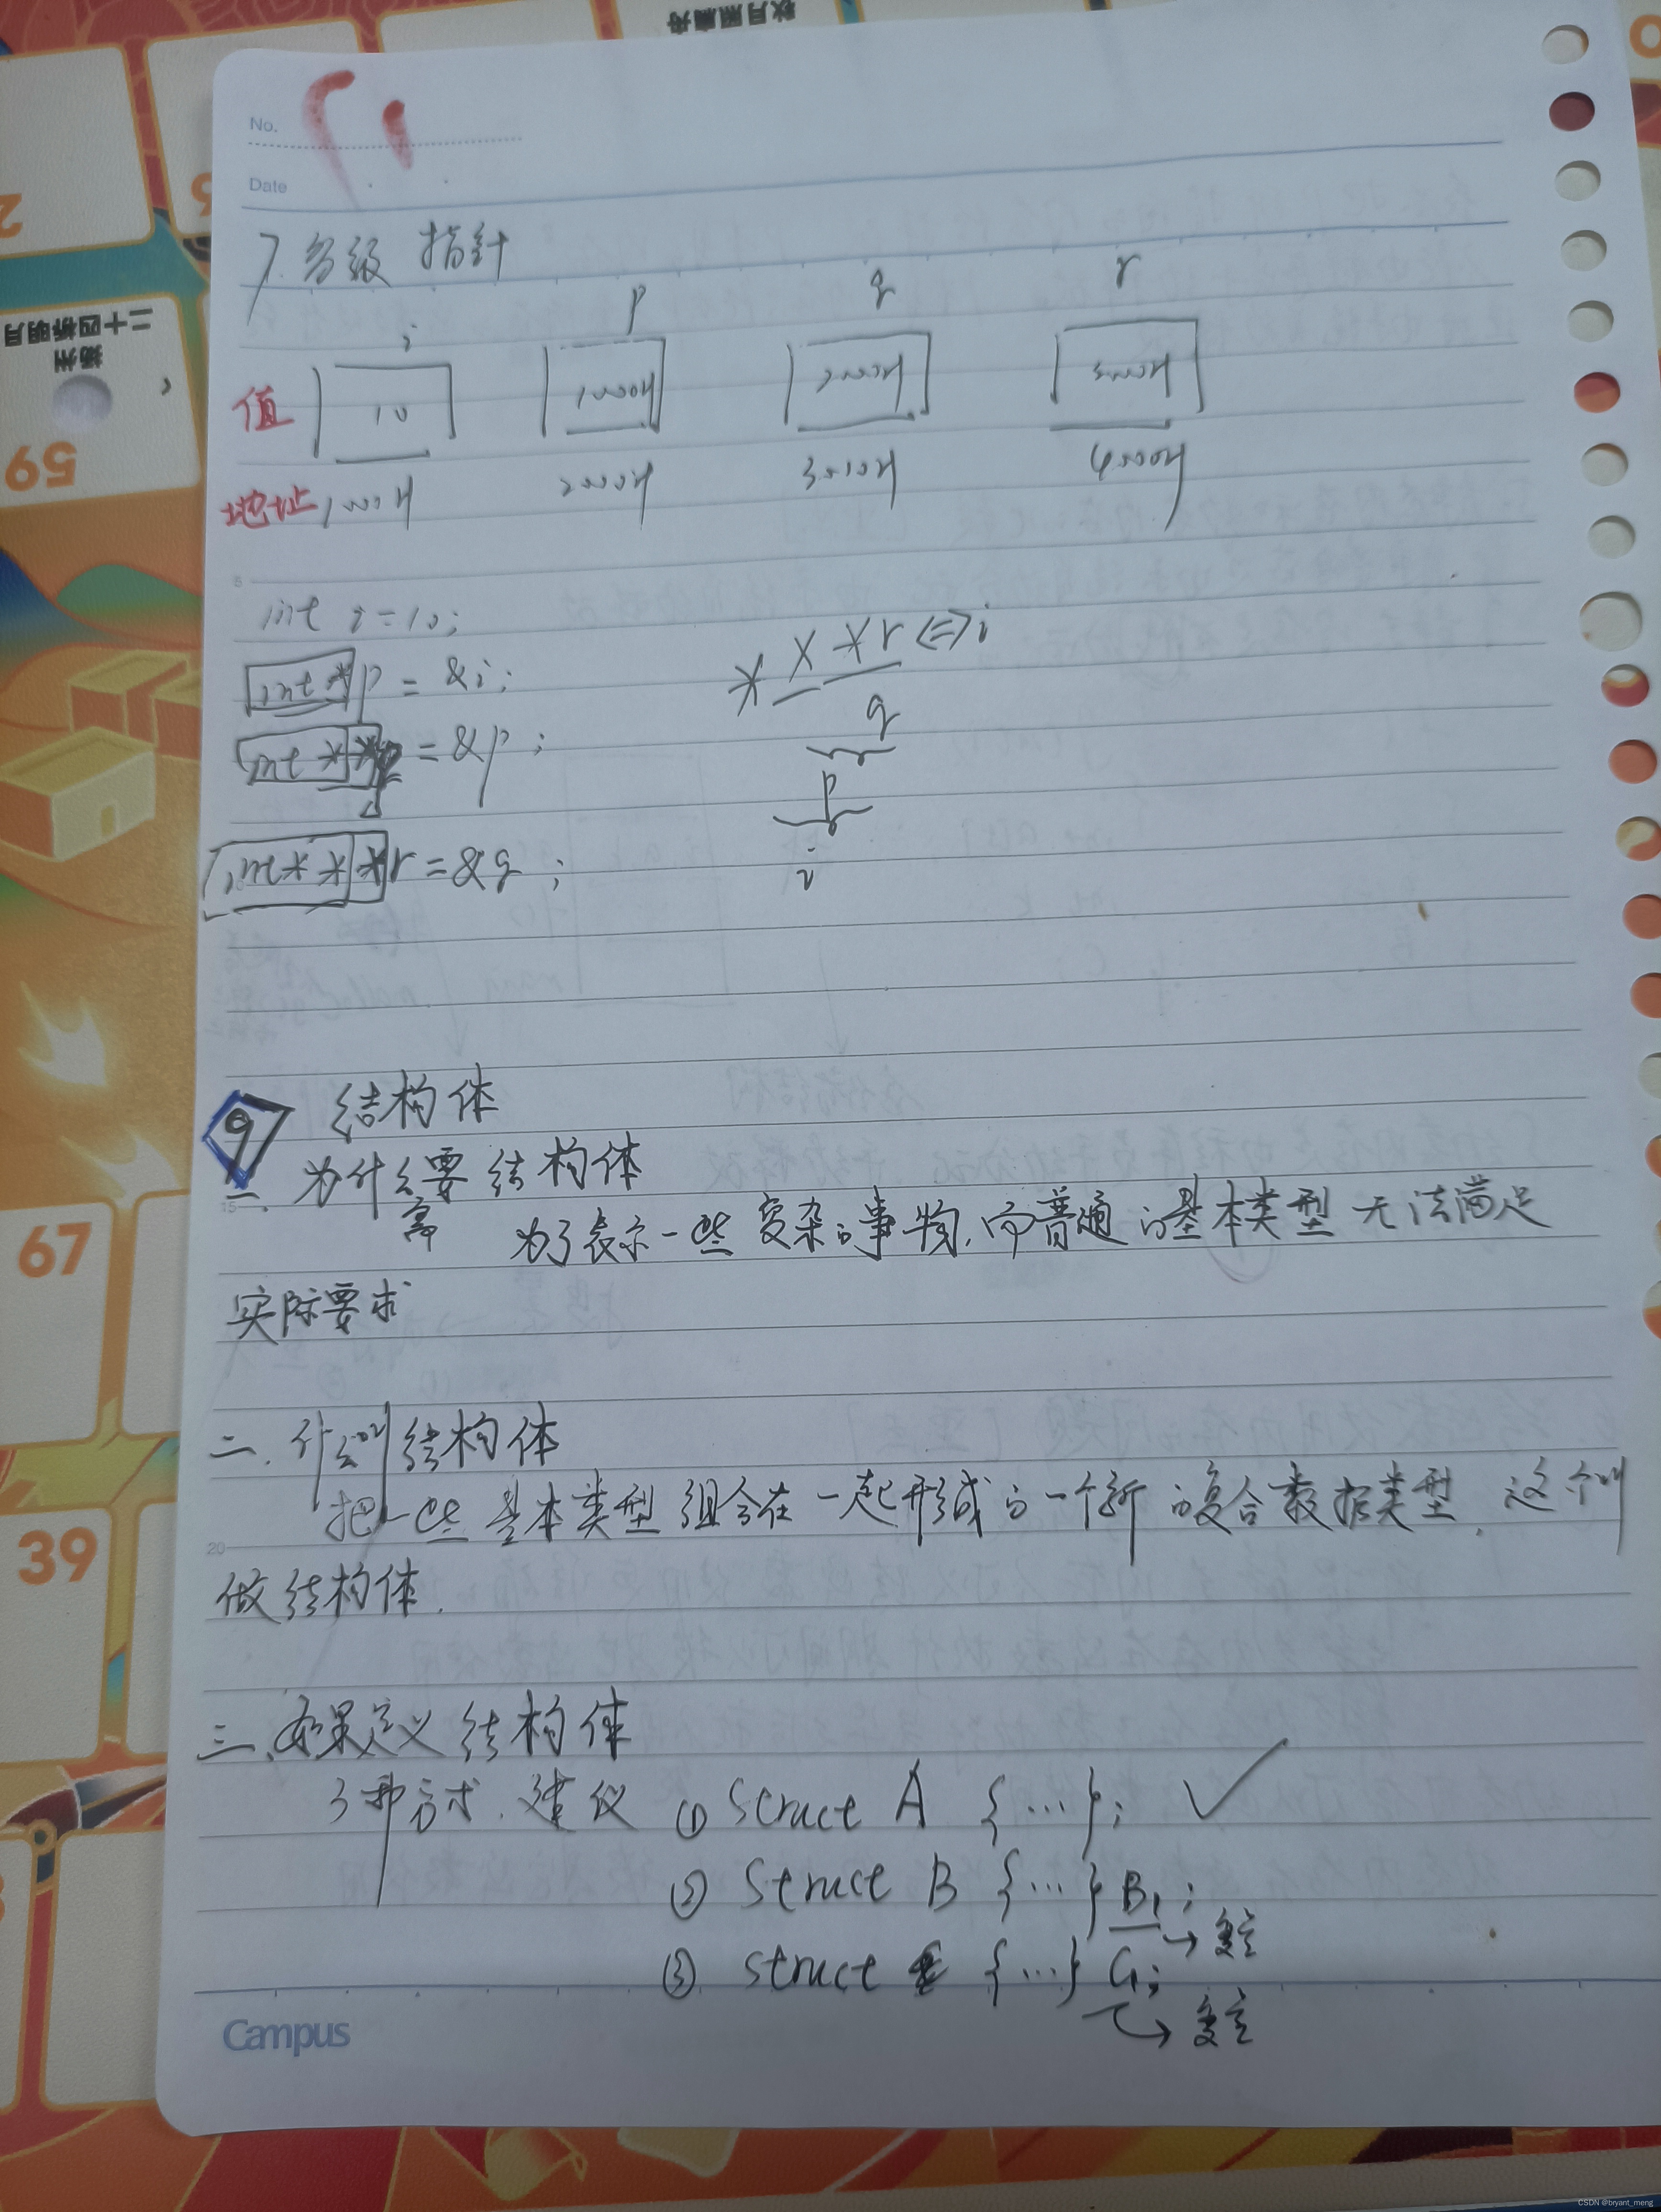 秋月照扁舟
No.
Date
7. 多级 指针
i p q r
值 10 1000H 2000H
地址 1000H 2000H 3000H 4000H
int i = 10;
int *p = &i;
* * *r <=> i
q
= &p;
p
int * * *r = &q;
i
9 结构体
一. 为什么需要结构体
为了表示一些复杂的事物,而普通的基本类型无法满足
实际要求
二. 什么叫结构体
把一些基本类型组合在一起形成的一个新的复合数据类型,这个叫
做结构体.
三. 如果定义结构体
3种方式.建议 ① struct A {...}; ✓
② struct B {...} B1;
→ 变
③ struct {...} C1;
→ 变
Campus
二十四桥明月
扬州
59
67
39
CSDN @bryant_meng